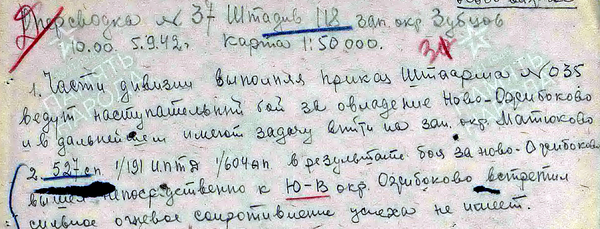 Оперсводка № 37 Штадив 118 зап. окр. Зубцов
10.00. 5.9.42г. карта 1:50000.
1. Части дивизии выполняя приказ Штаарма № 035
ведут наступательный бой за овладение Ново-Ожибоково
и в дальнейшем имеют задачу выйти на зап. окр. Матюково
2. 527сп 1/191 иптд 1/604ап в результате боя за Ново-Ожибоково
вышел непосредственно к Ю-В окр. Ожибоково встретил
сильное огневое сопротивление успеха не имеет.
ПАМЯТЬ НАРОДА